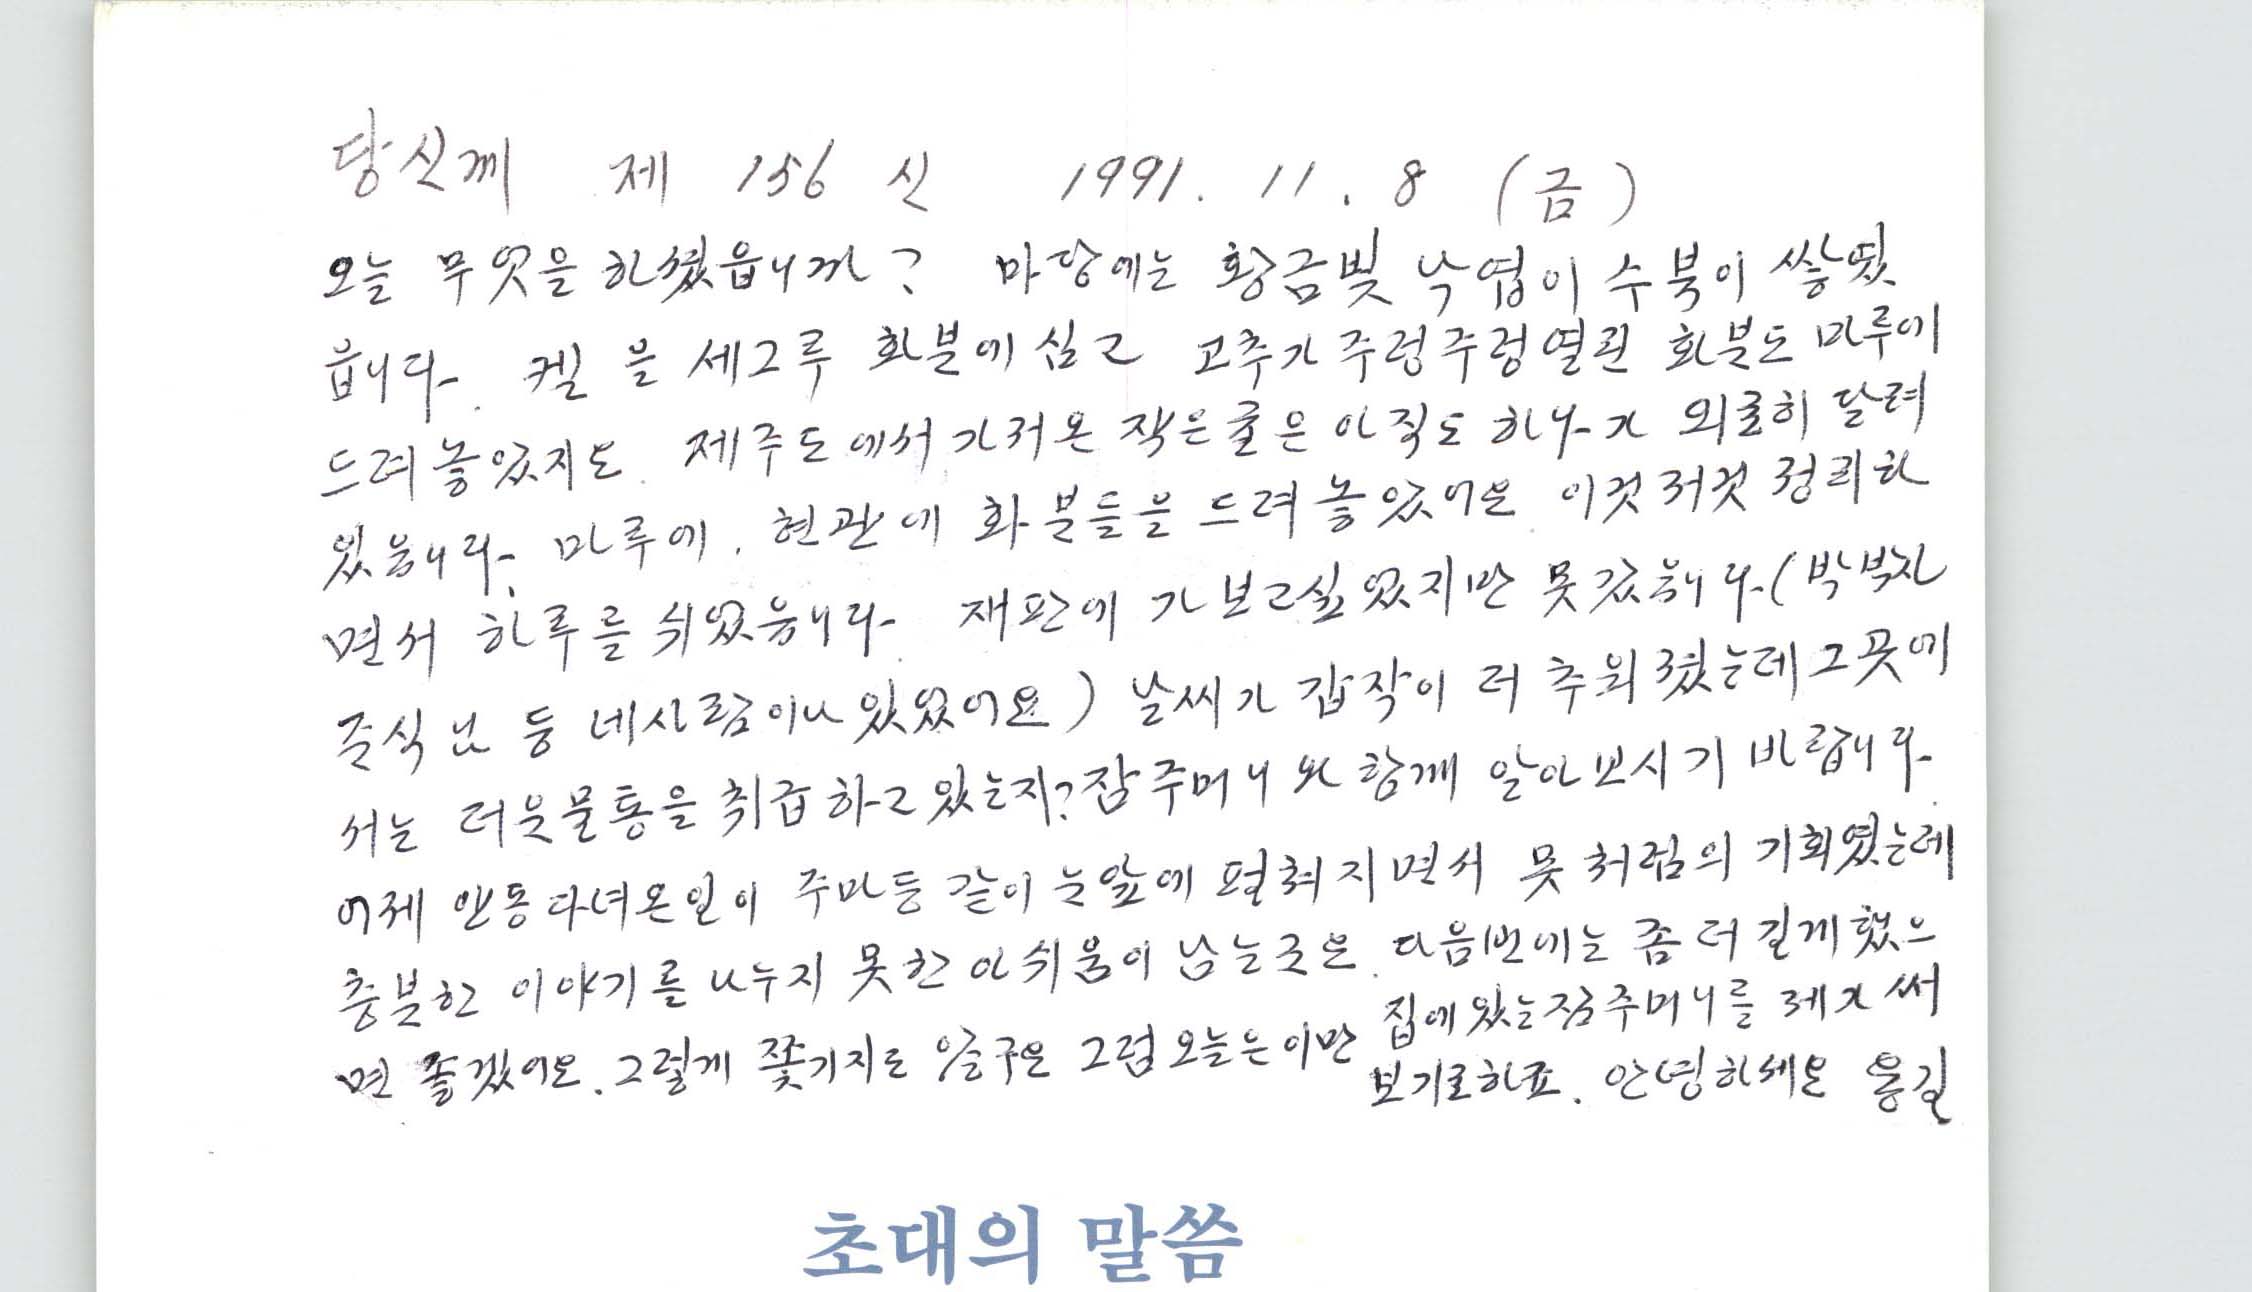 당신께 제 156 신 1991. 11. 8 (금)
오늘 무엇을 하셨읍니까? 마당에는 황금빛 낙엽이 수북이 쌓였
읍니다. 켈을 세그루 화분에 심고 고추가 주렁주렁 열린 화분도 마루에
드려놓았지요. 제주도에서 가저온 작은 귤은 아직도 하나가 외로히 달려
있읍니다. 마루에, 현관에 화분들을 드려놓았어요. 이것저것 정리하
면서 하루를 쉬었읍니다. 재판에 가보고싶었지만 못갔읍니다. (박복자
준식 난 등 네사람이나 있었어요) 날씨가 갑작이 더 추워졌는데 그곳에
서는 더운물통을 취급하고 있는지? 잠주머니와 함께 알아보시기 바랍니다.
어제 안동다녀온일이 주마등 같이 눈앞에 펼처지면서 뭇처럼의 기회였는데
충분한 이야기를 나누지 못한 아쉬움이 남는군요. 다음번에는 좀 더 길게 했으
면 좋겠어요. 그렇게 쫓기지도 않구요 그럼 오늘은 이만 집에있는잠주머니를 제가 써
보기로하죠. 안녕하세요 용길
초대의 말씀